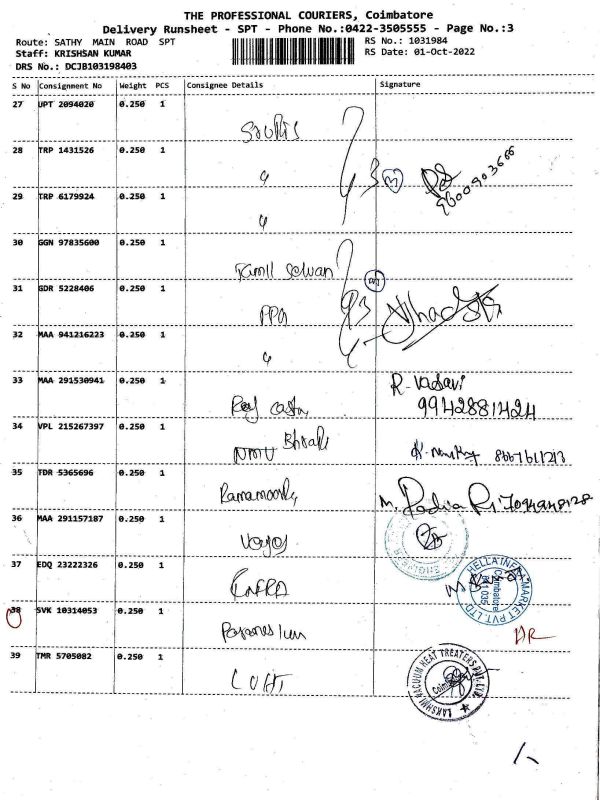 THE PROFESSIONAL COURIERS, Coimbatore
Delivery Runsheet - SPT - Phone No.:0422-3505555 - Page No.:3
Route: SATHY MAIN ROAD SPT
RS No.: 1031984
Staff: KRISHSAN KUMAR
RS Date: 01-Oct-2022
DRS No.: DCJB103198403
S No Consignment No Weight PCS Consignee Details Signature
27 UPT 2094020 0.250 1
28 TRP 1431526 0.250 1
3
9600903666
29 TRP 6179924 0.250 1
30 GGN 97835600 0.250 1
Tamil Selvan
31 GDR 5228406 0.250 1
PPG
32 MAA 941216223 0.250 1
33 MAA 291530941 0.250 1
R. Vasavi
9942881424
34 VPL 215267397 0.250 1
35 TDR 5365696 0.250 1
Ramamoorthy
36 MAA 291157187 0.250 1
37 EDQ 23222326 0.250 1
INFRA
HELLA INFRA MARKET PVT. LTD.
Coimbatore
641 035
38 SVK 10314053 0.250 1
39 TMR 5705082 0.250 1
LAKSHMI VACUUM HEAT TREATERS PVT. LTD.